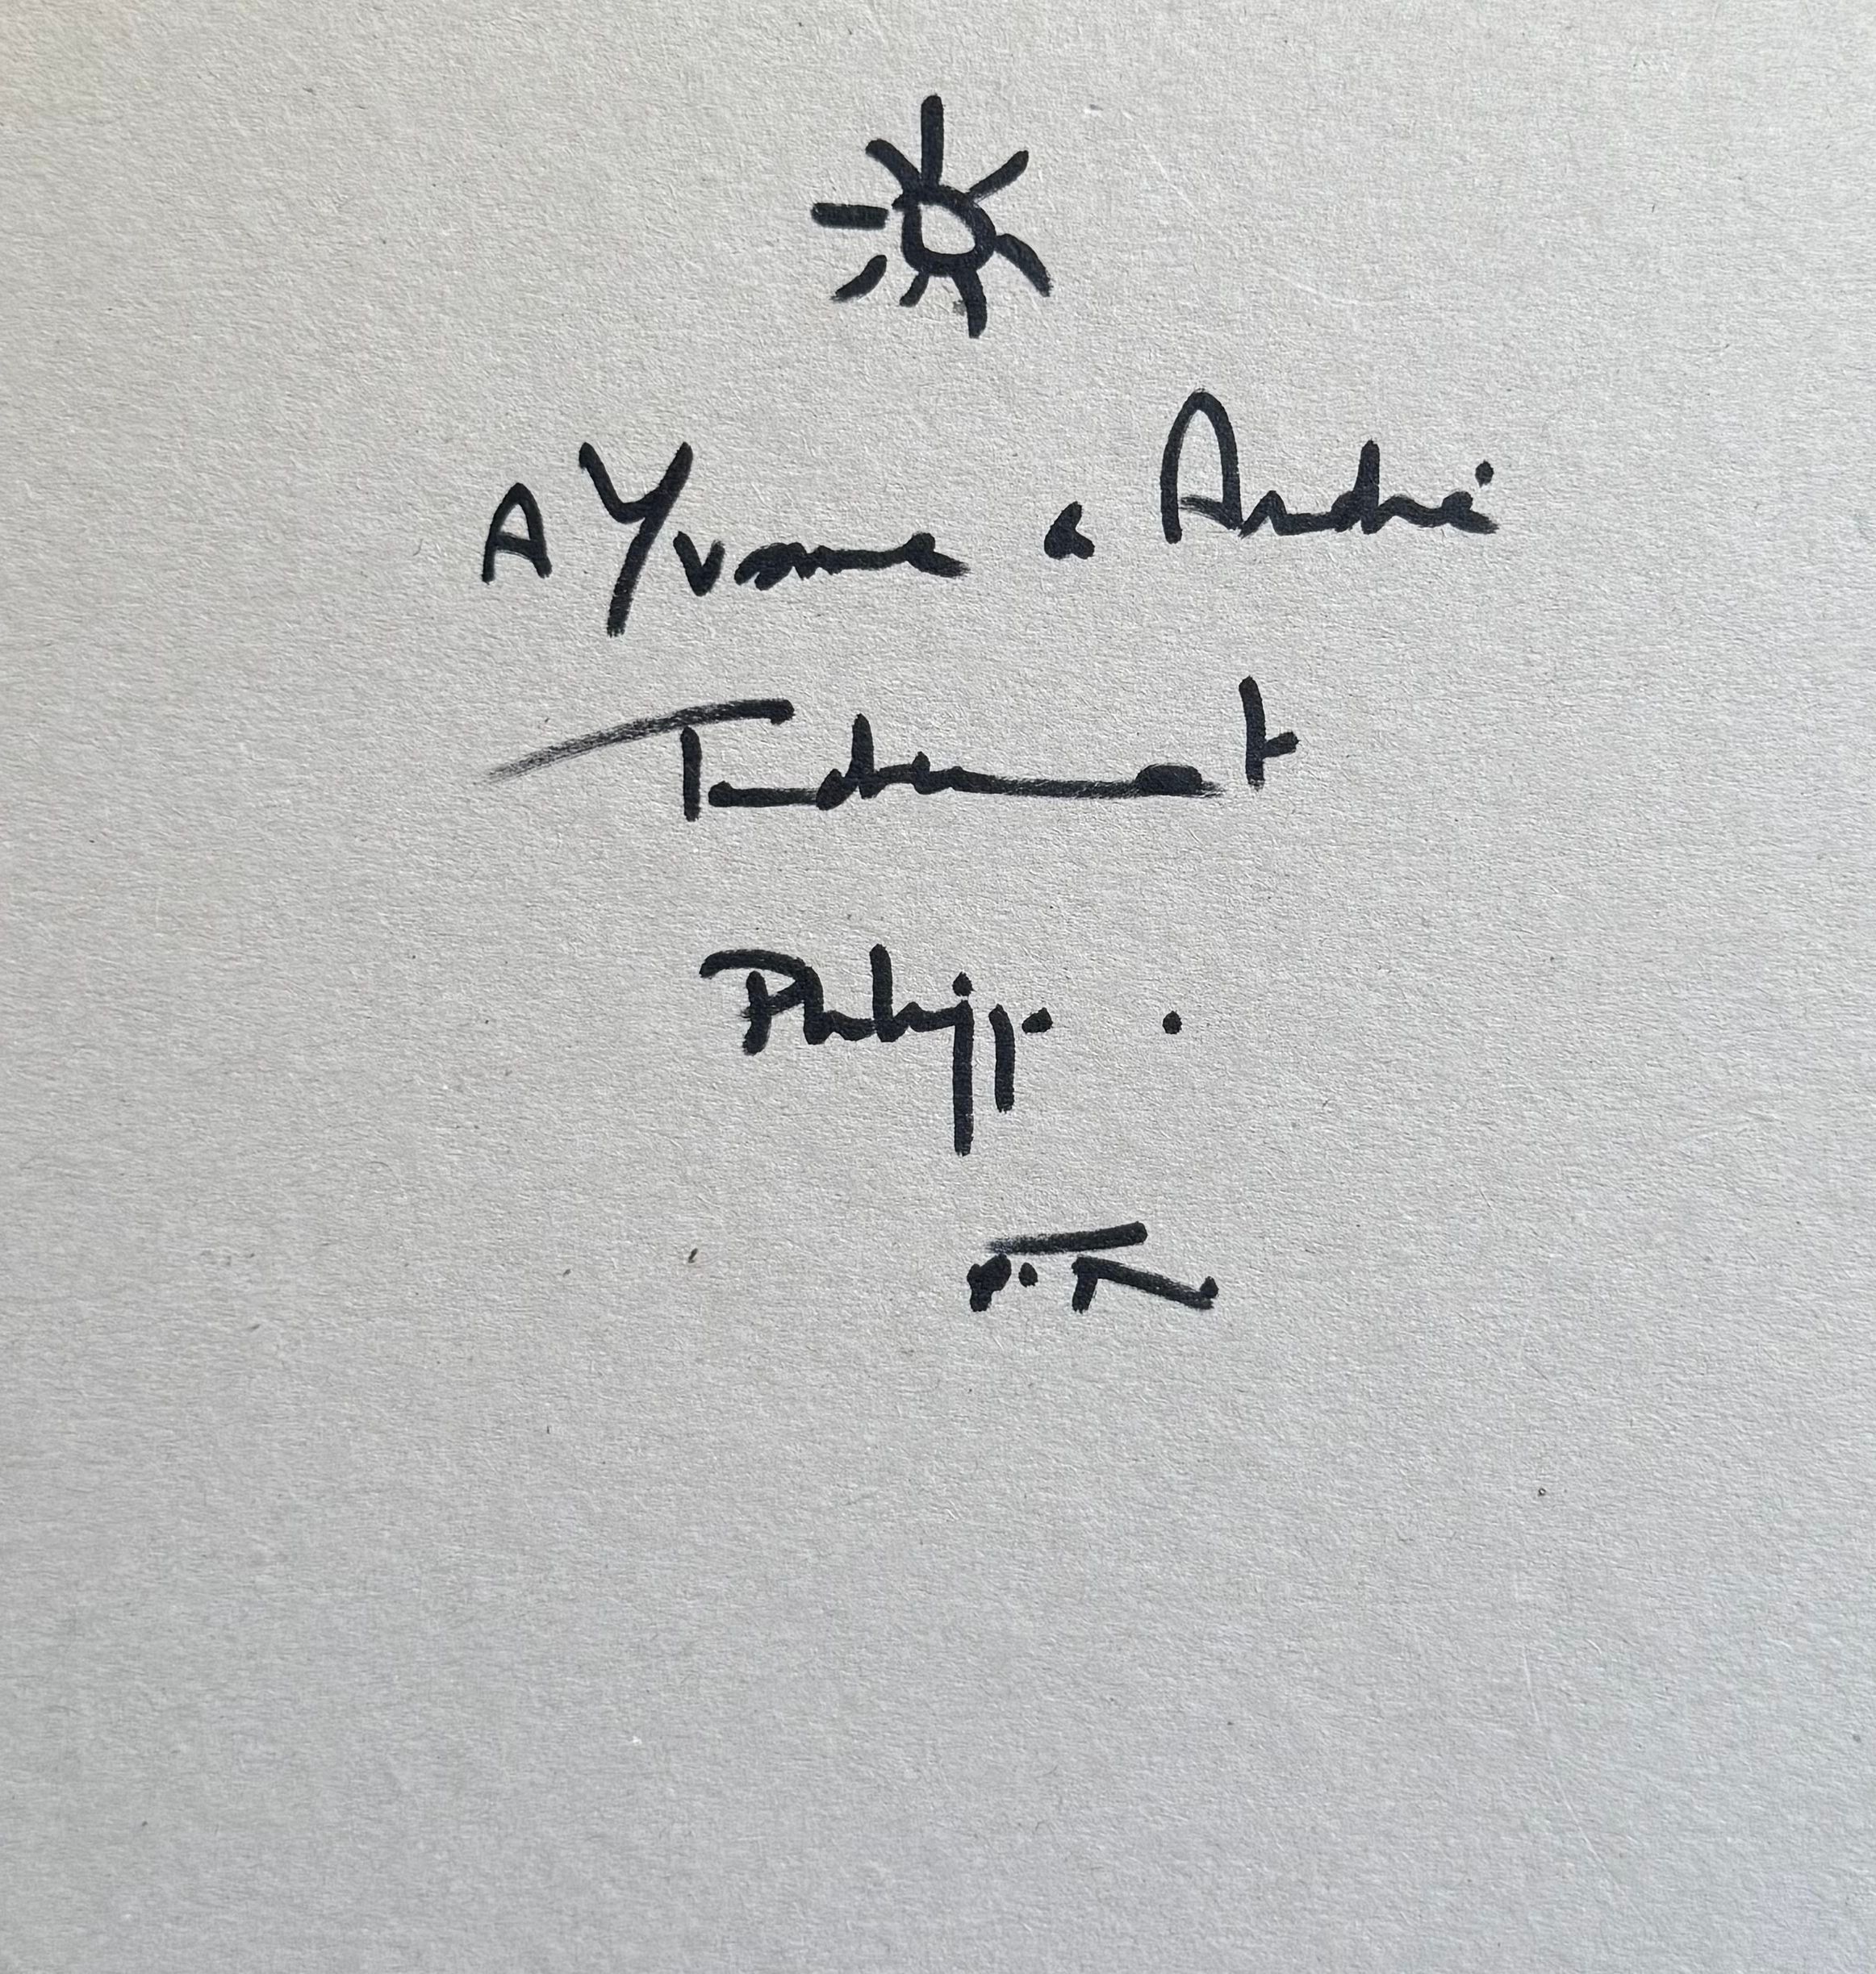 A Yvonne a André
Tendrement
Philippe.
P.T